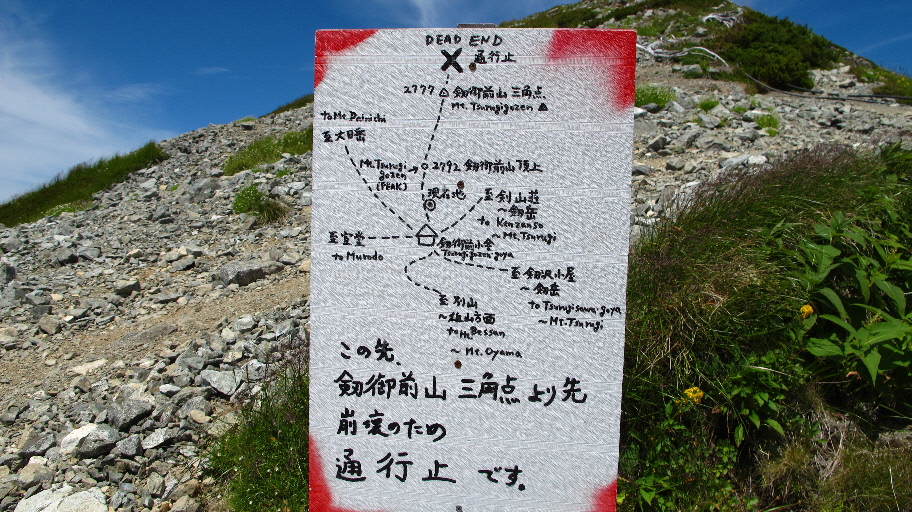 DEAD END
通行止
2777 剱御前山 三角点
Mt. Tsurugigozen
to Mt. Dainichi
至大日岳
Mt. Tsurugi
gozen
(PEAK)
2792 剱御前山頂上
現在地
至剣山荘
~剱岳
to Kenzanso
~ Mt. Tsurugi
至室堂
to Murodo
剱御前小舎
Tsurugigozen goya
至剱沢小屋
~剱岳
to Tsurugisawa goya
~ Mt. Tsurugi
至別山
~雄山方面
to Mt. Bessan
~ Mt. Oyama
この先、
剱御前山 三角点より先
崩壊のため
通行止です。